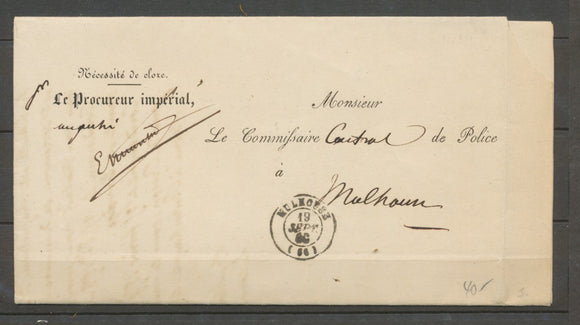 Nécessité de clore.
Le Procureur impérial,
Monsieur
Le Commissaire Central de Police
à
Mulhouse
MULHOUSE
19
SEPT
66
(66)
40